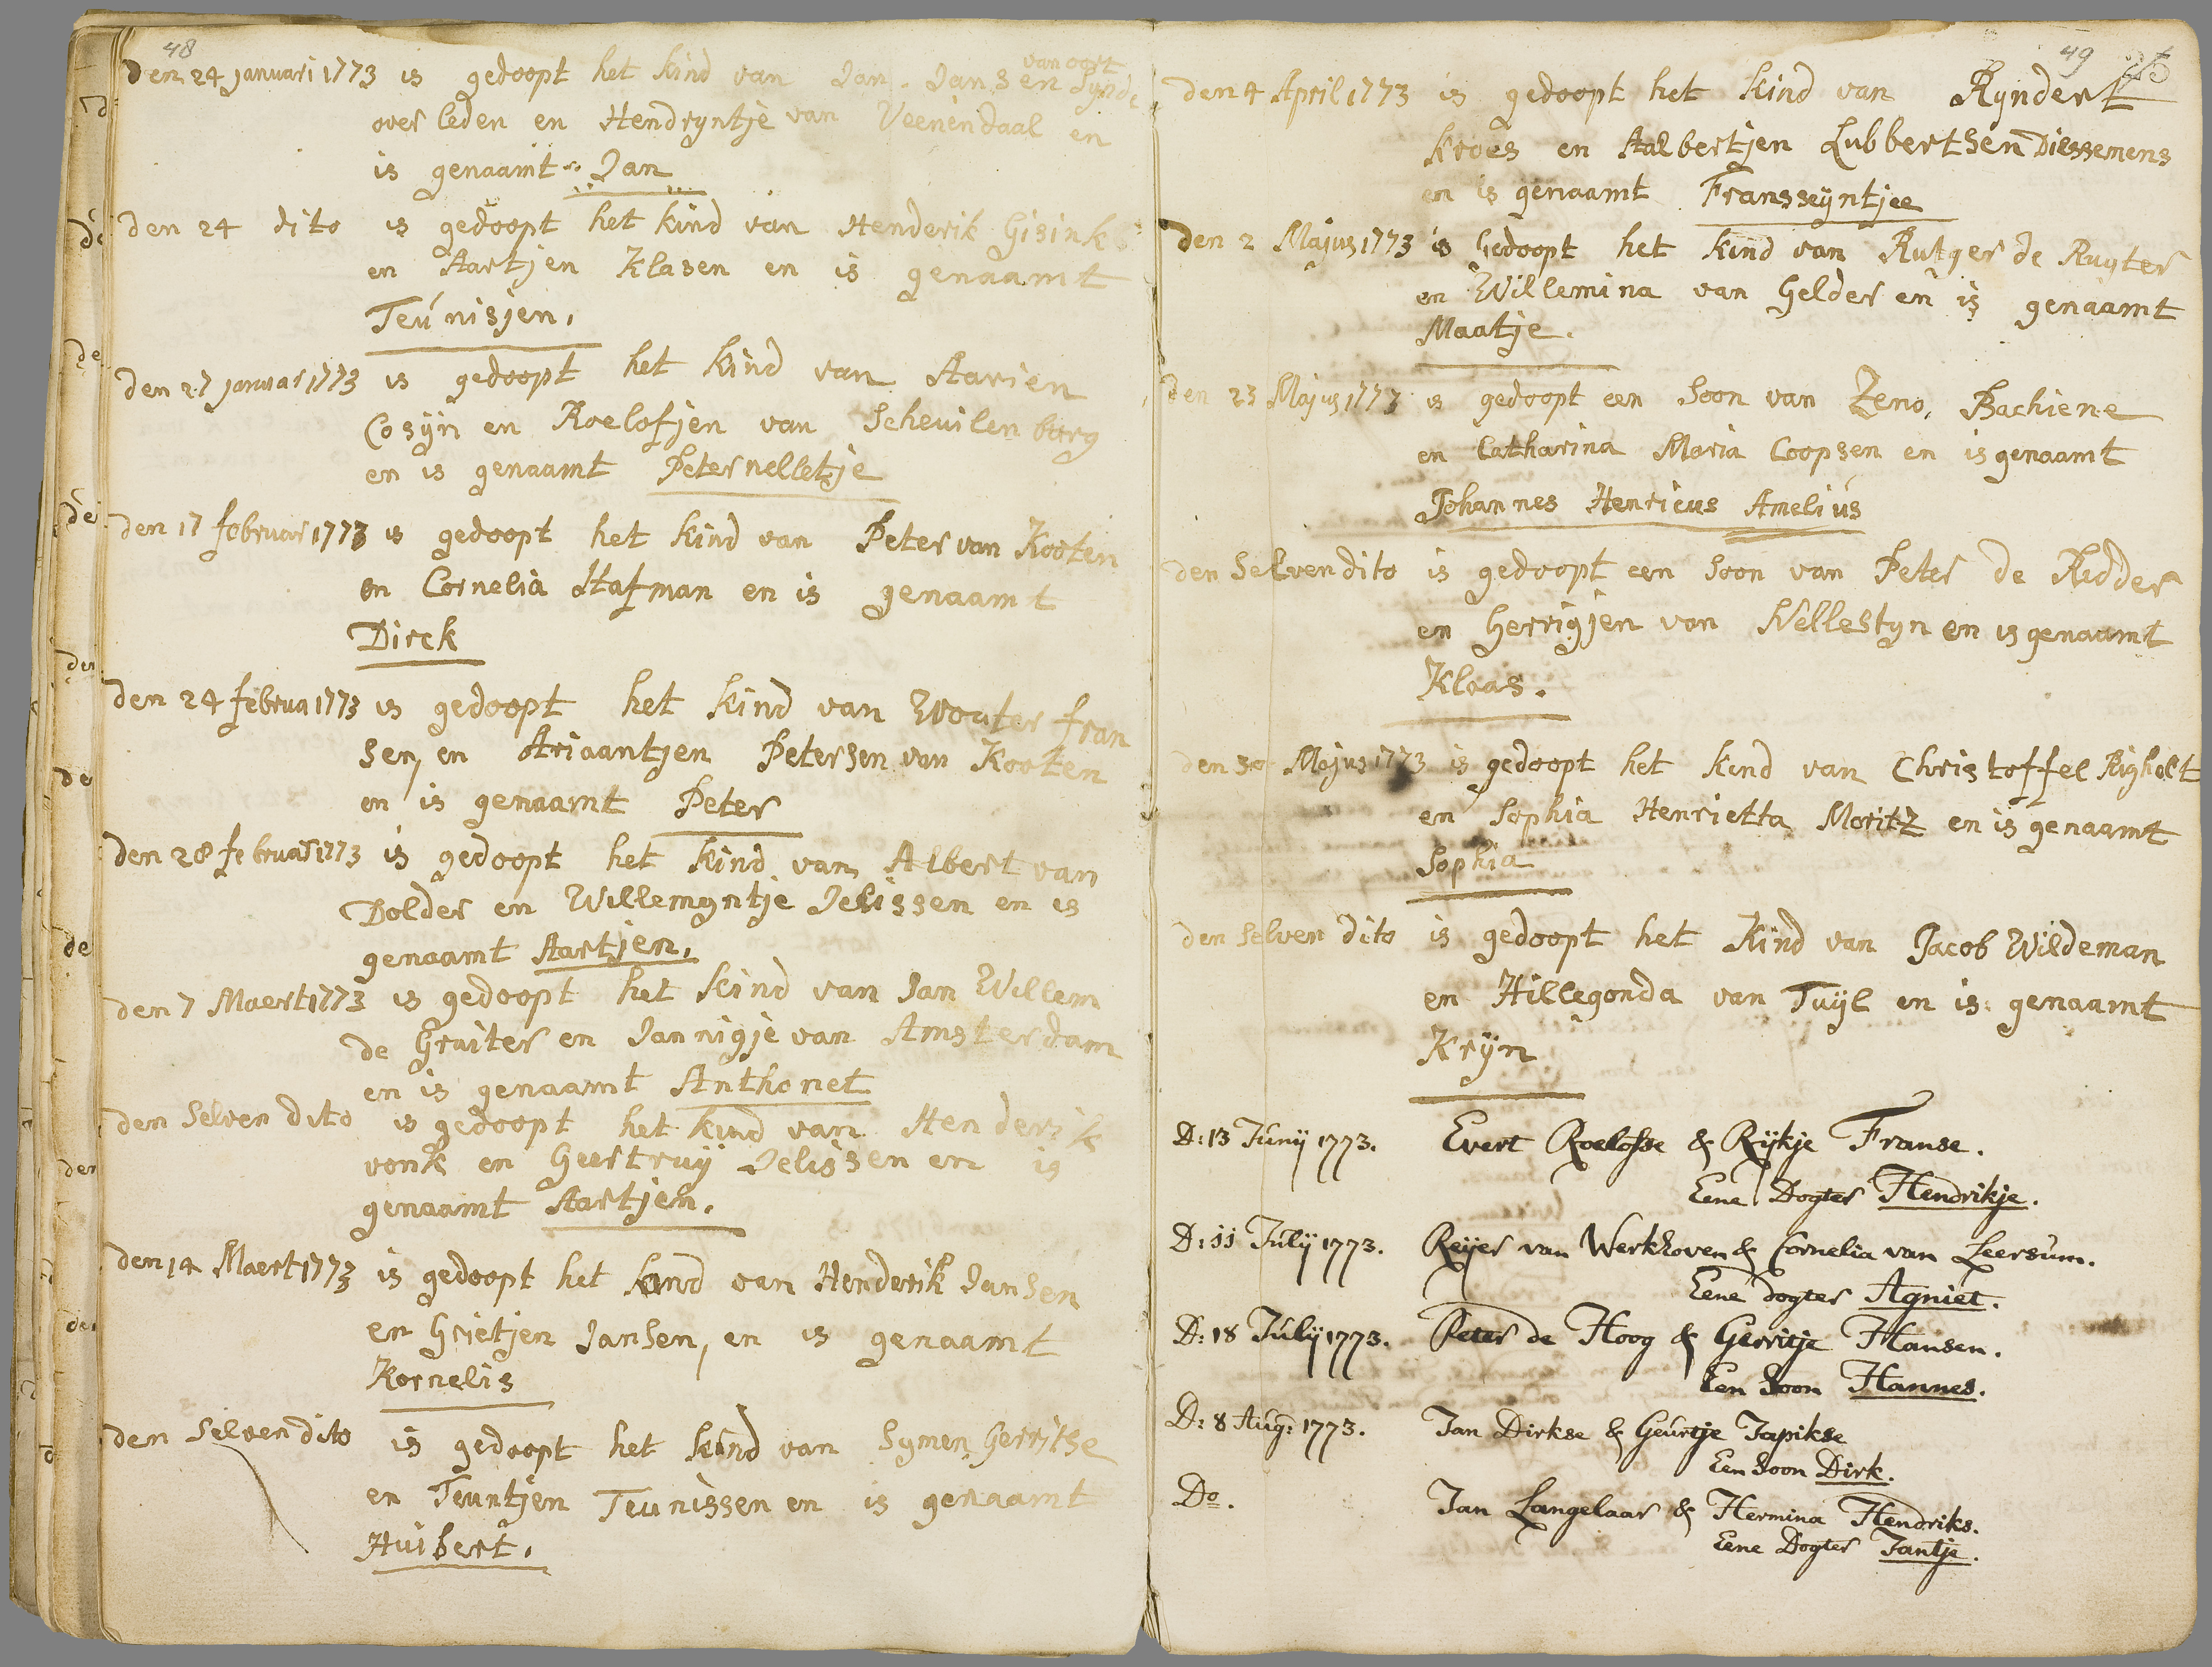 48
den 24 januari 1773 is gedoopt het kind van Jan Jansen van oort
over leden en Hendryntje van Veenendaal en
is genaamt Jan
den 24 dito is gedoopt het kind van Henderik Gisink
en Aartjen Klasen en is genaamt
Teúnisjen.
den 27 januar 1773 is gedoopt het kind van Aarien
Cosÿn en Roelofjen van Scheuilenburg
en is genaamt Peternelletje
den 17 februar 1773 is gedoopt het kind van Peter van Kooten
en Cornelia Stafman en is genaamt
Dirck
den 24 februa 1773 is gedoopt het kind van Wouter fran
sen, en Ariaantjen Petersen van Kooten
en is genaamt Peter
den 28 februar 1773 is gedoopt het kind van Albert van
Dolder en Willemyntje Jelissen en is
genaamt Aartjen.
den 7 Maert 1773 is gedoopt het kind van Jan Willem
de Gruiter en Jannigje van Amsterdam
en is genaamt Anthonet
den Selven dito is gedoopt het kind van Henderik
vonk en Geertruÿ Jelissen en is
genaamt Aartjen.
den 14 Maert 1773 is gedoopt het kind van Henderik Jansen
en Grietjen Jansen, en is genaamt
Kornelis
den Selven dito is gedoopt het kind van Symen Gerritse
en Teuntjen Teunissen en is genaamt
Huibert.
49
den 4 April 1773 is gedoopt het kind van Ryndert
Kroes en Aalbertjen Lubbertsen Diessemens
en is genaamt Fransseÿntjee
den 2 Majus 1773 is Gedoopt het kind van Rutger de Ruyter
en Willemina van Gelder en is genaamt
Maatje.
den 23 Majus 1773 is gedoopt een Soon van Zeno, Bachiene
en Catharina Maria Coopsen en is genaamt
Johannes Henricus Ameliús
den Selven dito is gedoopt een Soon van Peter de Ridder
en Gerrigjen van Wellestyn en is genaamt
Klaas.
den 30 Majus 1773 is gedoopt het kind van Christoffel Righolt
en Sophia Henrietta Moritz en is genaamt
Sophia
den Selven dito is gedoopt het Kind van Jacob Wildeman
en Hillegonda van Tuÿl en is genaamt
Krÿn
D: 13 Junÿ 1773. Evert Roelofse & Rÿkje Franse.
Eene Dogter Hendrikje.
D: 11 Julÿ 1773. Reÿer van Werkhoven & Cornelia van Leersúm.
Eene dogter Agniet.
D: 18 Julÿ 1773. Peter de Hoog & Gerritje Hansen.
Een Soon Hannes.
D: 8 Aúg: 1773. Jan Dirkse & Geúrtje Japikse
Een Soon Dirk.
Do. Jan Langelaar & Hermina Hendriks.
Eene Dogter Jantje.